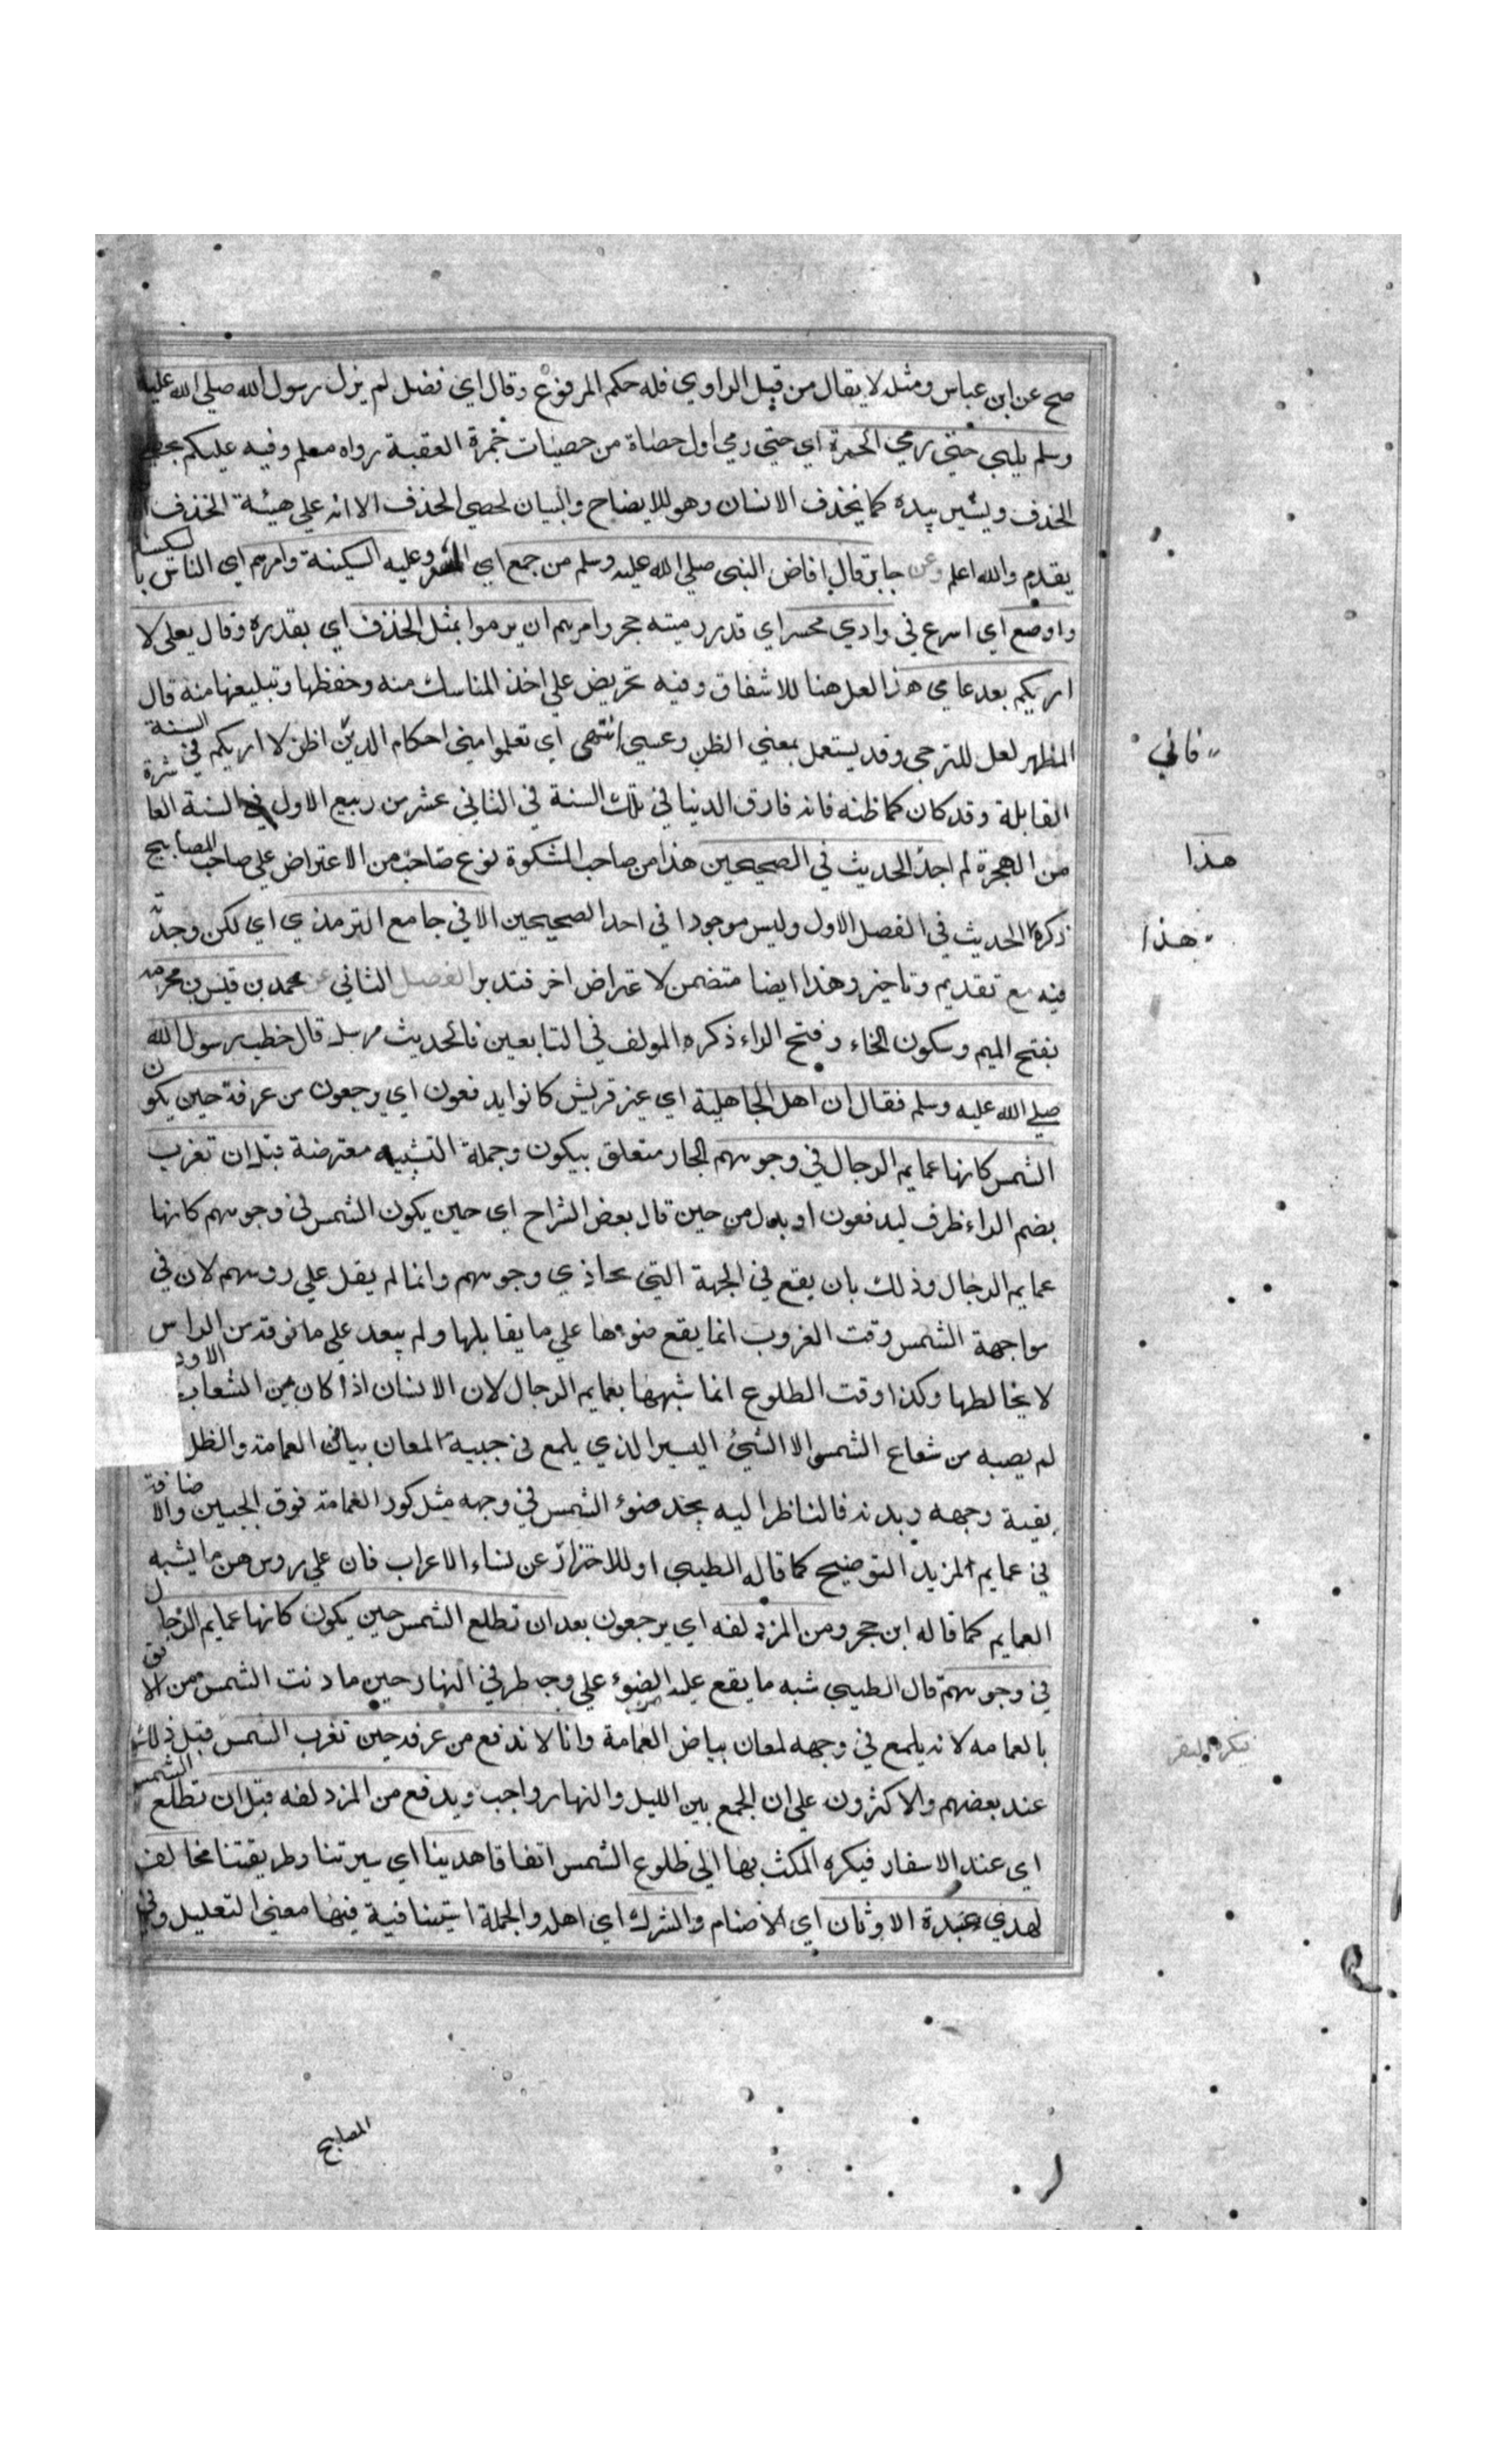 صح عن ابن عباس ومثله لا يقال من قبل الراوي فله حكم المرفوع وقال اي فضل لم يزل رسول الله صلي الله عليه
وسلم يلبي حتي رمي الجمرة اي حتي رمي اول حصاة من حصيات جمرة العقبة رواه مسلم وفيه عليكم بحصي
الخذف ويشير بيده كما يخذف الانسان وهو للايضاح والبيان لحصي الخذف الا انه علي هيئة الخذف
يقدم والله اعلم وعن جابر قال افاض النبي صلي الله عليه وسلم من جمع اي وعليه السكينة وامرهم اي الناس بالسكينة
واوضع اي اسرع في وادي محسر اي قدر رمية حجر وامرهم ان يرموا بمثل الخذف اي بقدره وقال لعلي لا
اريكم بعد عامي هذا لعل هنا للاشفاق وفيه تحريض علي اخذ المناسك منه وحفظها وتبليغها منه قال
المظهر لعل للترجي وقد يستعمل بمعني الظن وعسي انتهي اي تعلموا مني احكام الدين اظن لا اريكم في السنة
القابلة وقد كان كما ظنه فانه فارق الدنيا في تلك السنة في الثاني عشر من ربيع الاول في السنة العاشرة
من الهجرة لم اجد الحديث في الصحيحين هذا من صاحب المشكوة نوع صاحب من الاعتراض علي صاحب المصابيح
ذكره الحديث في الفصل الاول وليس موجودا في احد الصحيحين الا في جامع الترمذي اي لكن وجدته
فيه مع تقديم وتاخير وهذا ايضا متضمن لاعتراض اخر فتدبر الفصل الثاني عن محمد بن قيس بن مخرمه
بفتح الميم وسكون الخاء وفتح الراء ذكره المولف في التابعين فالحديث مرسل قال خطب رسول الله
صلي الله عليه وسلم فقال ان اهل الجاهلية اي غير قريش كانوا يدفعون اي يرجعون من عرفة حين يكون
الشمس كانها عمايم الرجال في وجوههم الجار متعلق بيكون وجملة التشبيه معترضة قبل ان تغرب
بضم الراء ظرف ليدفعون او بدل من حين قال بعض الشراح اي حين يكون الشمس في وجوههم كانها
عمايم الرجال وذلك بان يقع في الجهة التي تحاذي وجوههم وانما لم يقل علي روسهم لان في
مواجهة الشمس وقت الغروب انما يقع ضوءها علي ما يقابلها ولم يبعد علي ما فوقه من الراس
لا يخالطها وكذا وقت الطلوع انما شبهها بعمايم الرجال لان الانسان اذا كان بين الشعاب الاود
لم يصبه من شعاع الشمس الا الشيئ اليسير الذي يلمع في جبينه لمعان بياض العمامة والظل
بقية وجهه وبدنه فالناظر اليه يجد ضوء الشمس في وجهه مثل كور العمامة فوق الجبين والاضافة
في عمايم لمزيد التوضيح كما قاله الطيبي او للاحتراز عن نساء الاعراب فان علي روسهن ما يشبه
العمايم كما قاله ابن حجر ومن المزدلفه اي يرجعون بعد ان تطلع الشمس حين يكون كانها عمايم الرجال
في وجوههم قال الطيبي شبه ما يقع عليه الضوء علي وجه طرفي النهار حين ما دنت الشمس من الافق
بالعمامه لانه يلمع في وجهه لمعان بياض العمامة وانا لا ندفع من عرفه حين تغرب الشمس قبل ذلك
عند بعضهم والاكثرون علي ان الجمع بين الليل والنهار واجب ويدفع من المزدلفه قبل ان تطلع الشمس
اي عند الاسفار فيكره المكث بها الي طلوع الشمس اتفاقا هدينا اي سيرتنا وطريقتنا مخالف
لهدي عبدة الاوثان اي الاصنام والشرك اي اهله والجملة استينافية فيها معني التعليل وفي
فاني
هذا
هذا
المصابيح